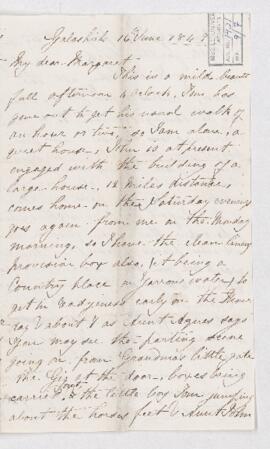 Galashiels 16th June 184
My dear Margaret
This is a mild beauti
full afternoon 4 oclock. Tom has
gone out to get his usual walk of
an hour or two, so I am alone, a
quiet house, John is at present
engaged with the building of a
large house, 12 Miles distance,
comes home on the Saturday evening
goes again from me on the Monday
morning, so I have the clean linen
provision box also, it being a
Country place in Yarrow water, to
get in readyness early on the Mon
day about 8 as Aunt Agnes says
You may see the parting scene
going on, from Grandmas little gate
the Gig at the door, boxes being
carried out, & the little boy Tom jumping
about the horses feet & Aunt John